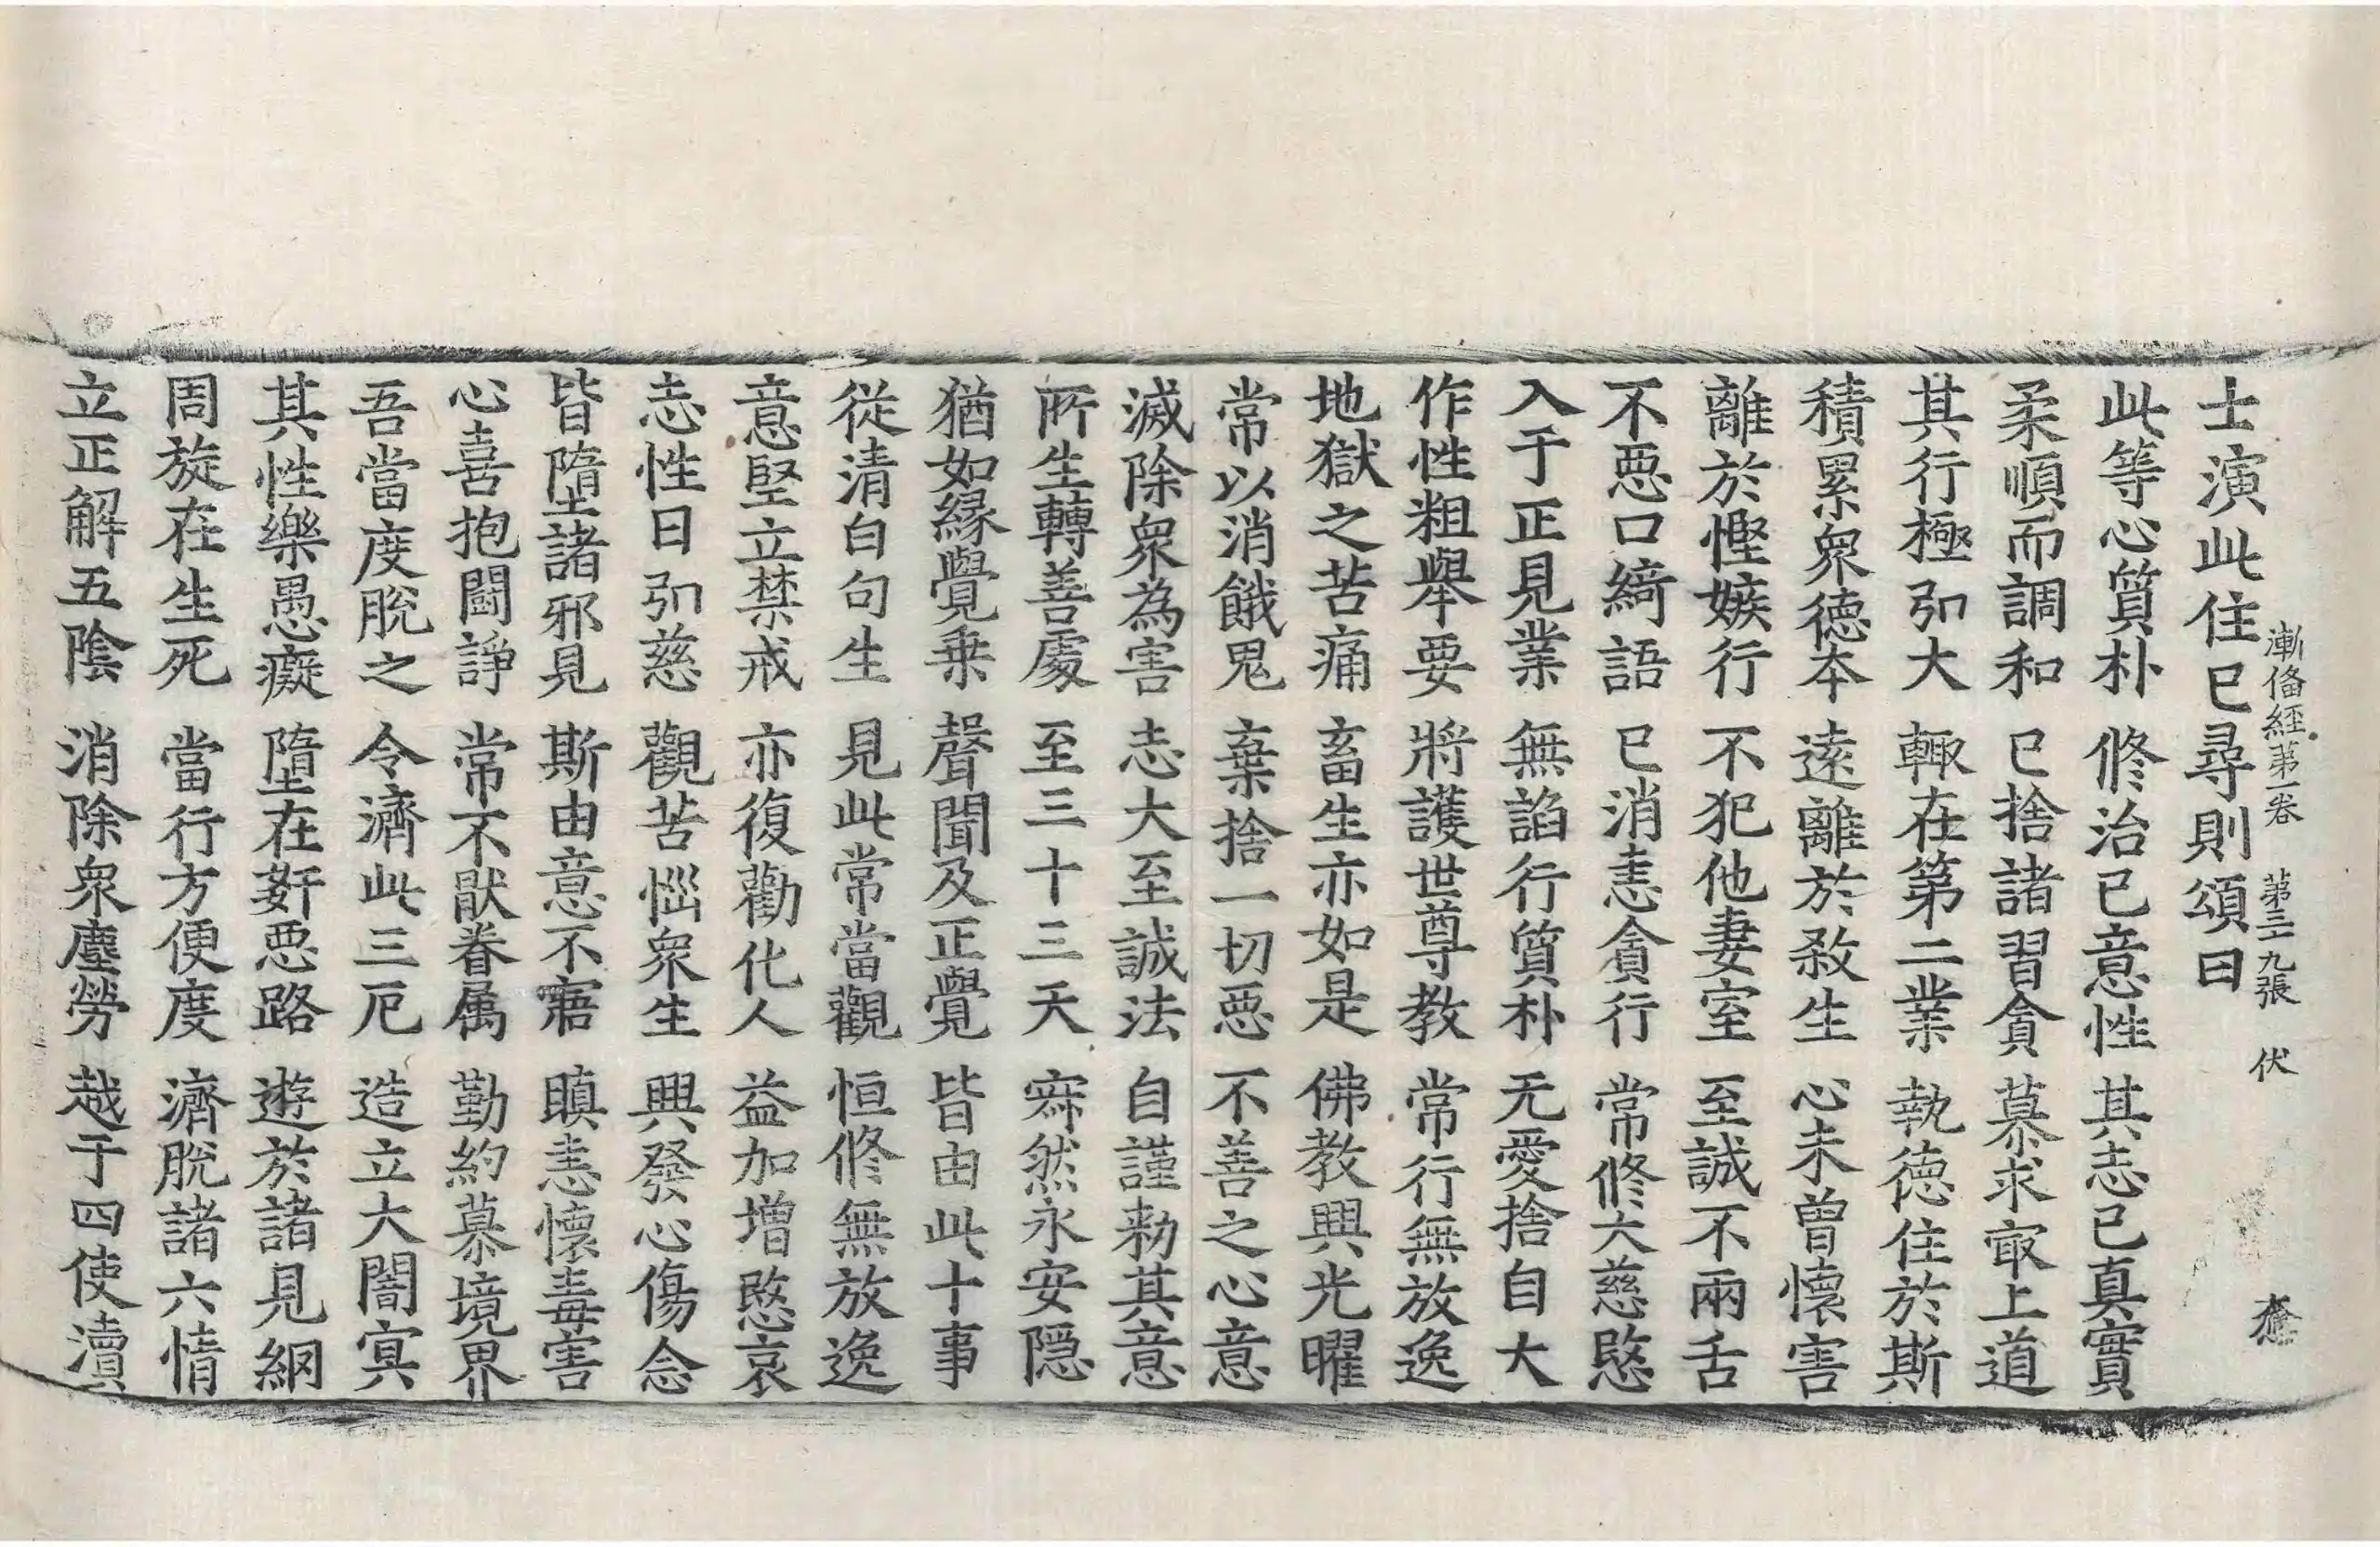 漸俻經第一卷 第三九張 伏
士演此住已尋則頌曰
此等心質朴 修治已意性 其志已真實
柔順而調和 已捨諸習貪 慕求冣上道
其行極弘大 輙在第二業 執德住於斯
積累衆德本 遠離於殺生 心未曾懷害
離於慳嫉行 不犯他妻室 至誠不兩舌
不惡口綺語 已消恚貪行 常修大慈愍
入于正見業 無諂行質朴 无愛捨自大
作性粗舉要 將護世尊教 常行無放逸
地獄之苦痛 畜生亦如是 佛教興光曜
常以消餓鬼 棄捨一切惡 不善之心意
滅除衆為害 志大至誠法 自謹勑其意
所生轉善處 至三十三天 寂然永安隱
猶如緣覺乗 聲聞及正覺 皆由此十事
從清白句生 見此常當觀 恒修無放逸
意堅立禁戒 亦復勸化人 益加增愍哀
志性日弘慈 觀苦惱衆生 興發心傷念
皆墮諸邪見 斯由意不寤 瞋恚懷毒害
心喜抱鬪諍 常不猒眷属 勤約慕境界
吾當度脫之 令濟此三厄 造立大闇冥
其性樂愚癡 墮在姧惡路 遊於諸見網
周旋在生死 當行方便度 濟脫諸六情
立正解五陰 消除衆塵勞 越于四使瀆